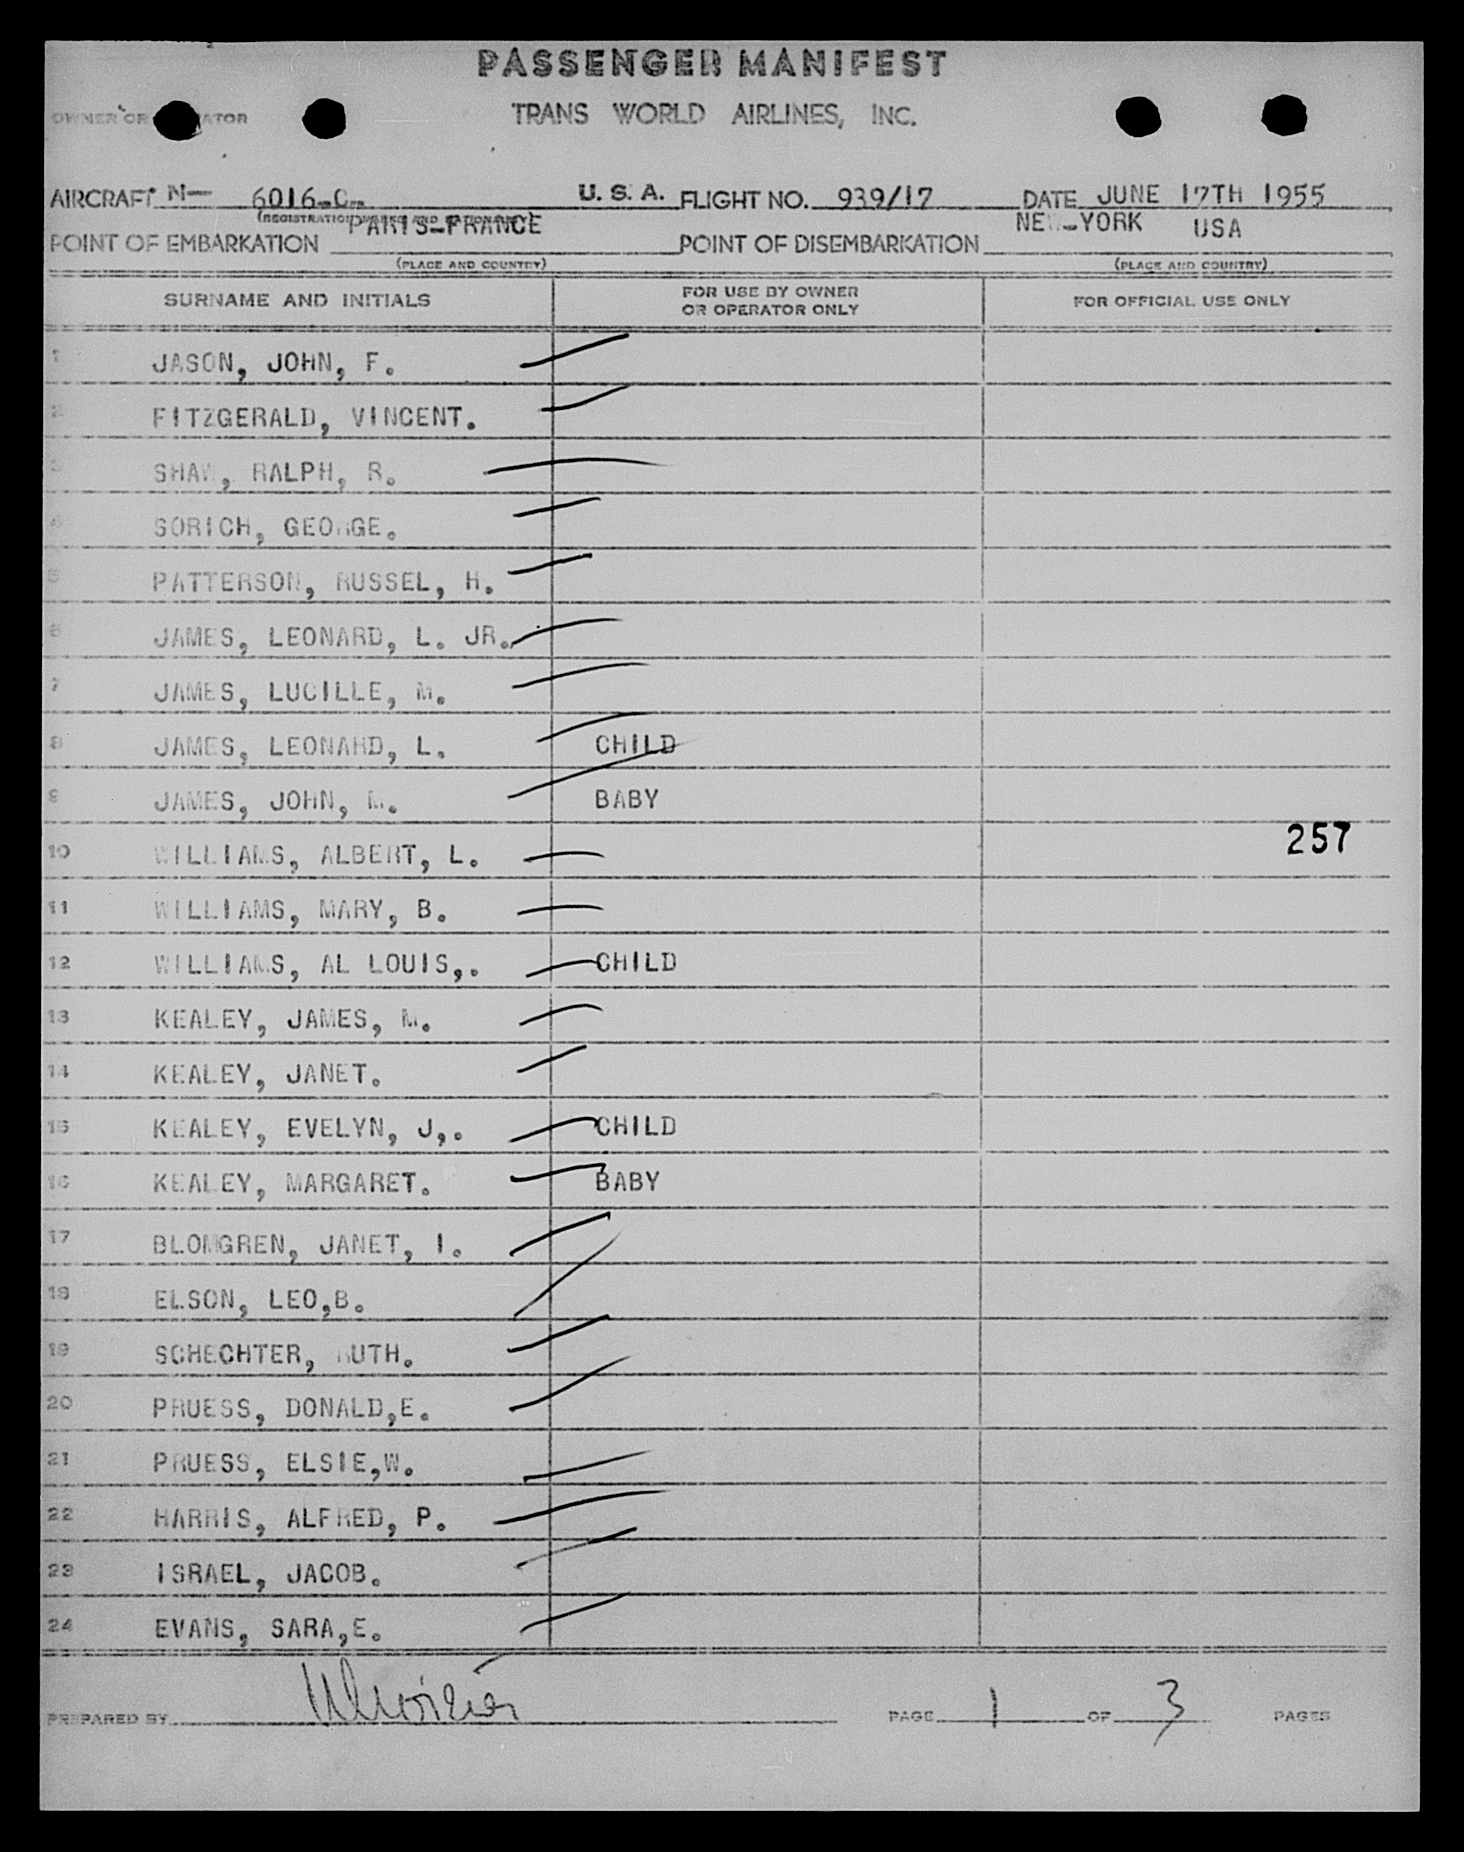 PASSENGER MANIFEST
OWNER OR OPERATOR TRANS WORLD AIRLINES, INC.
AIRCRAFT N— 6016-C- U. S. A. FLIGHT NO. 939/17 DATE JUNE 17TH 1955
(REGISTRATION MARKS AND NATIONALITY)
POINT OF EMBARKATION PARIS-FRANCE POINT OF DISEMBARKATION NEW-YORK USA
(PLACE AND COUNTRY) (PLACE AND COUNTRY)
SURNAME AND INITIALS FOR USE BY OWNER OR OPERATOR ONLY FOR OFFICIAL USE ONLY
1 JASON, JOHN, F.
2 FITZGERALD, VINCENT.
3 SHAW, RALPH, R.
4 SORICH, GEORGE.
5 PATTERSON, RUSSEL, H.
6 JAMES, LEONARD, L. JR.
7 JAMES, LUCILLE, M.
8 JAMES, LEONARD, L. CHILD
9 JAMES, JOHN, M. BABY
257
10 WILLIAMS, ALBERT, L.
11 WILLIAMS, MARY, B.
12 WILLIAMS, AL LOUIS,. CHILD
13 KEALEY, JAMES, M.
14 KEALEY, JANET.
15 KEALEY, EVELYN, J,. CHILD
16 KEALEY, MARGARET. BABY
17 BLOMGREN, JANET, I.
18 ELSON, LEO,B.
19 SCHECHTER, RUTH.
20 PRUESS, DONALD,E.
21 PRUESS, ELSIE,W.
22 HARRIS, ALFRED, P.
23 ISRAEL, JACOB.
24 EVANS, SARA,E.
PREPARED BY PAGE 1 OF 3 PAGES